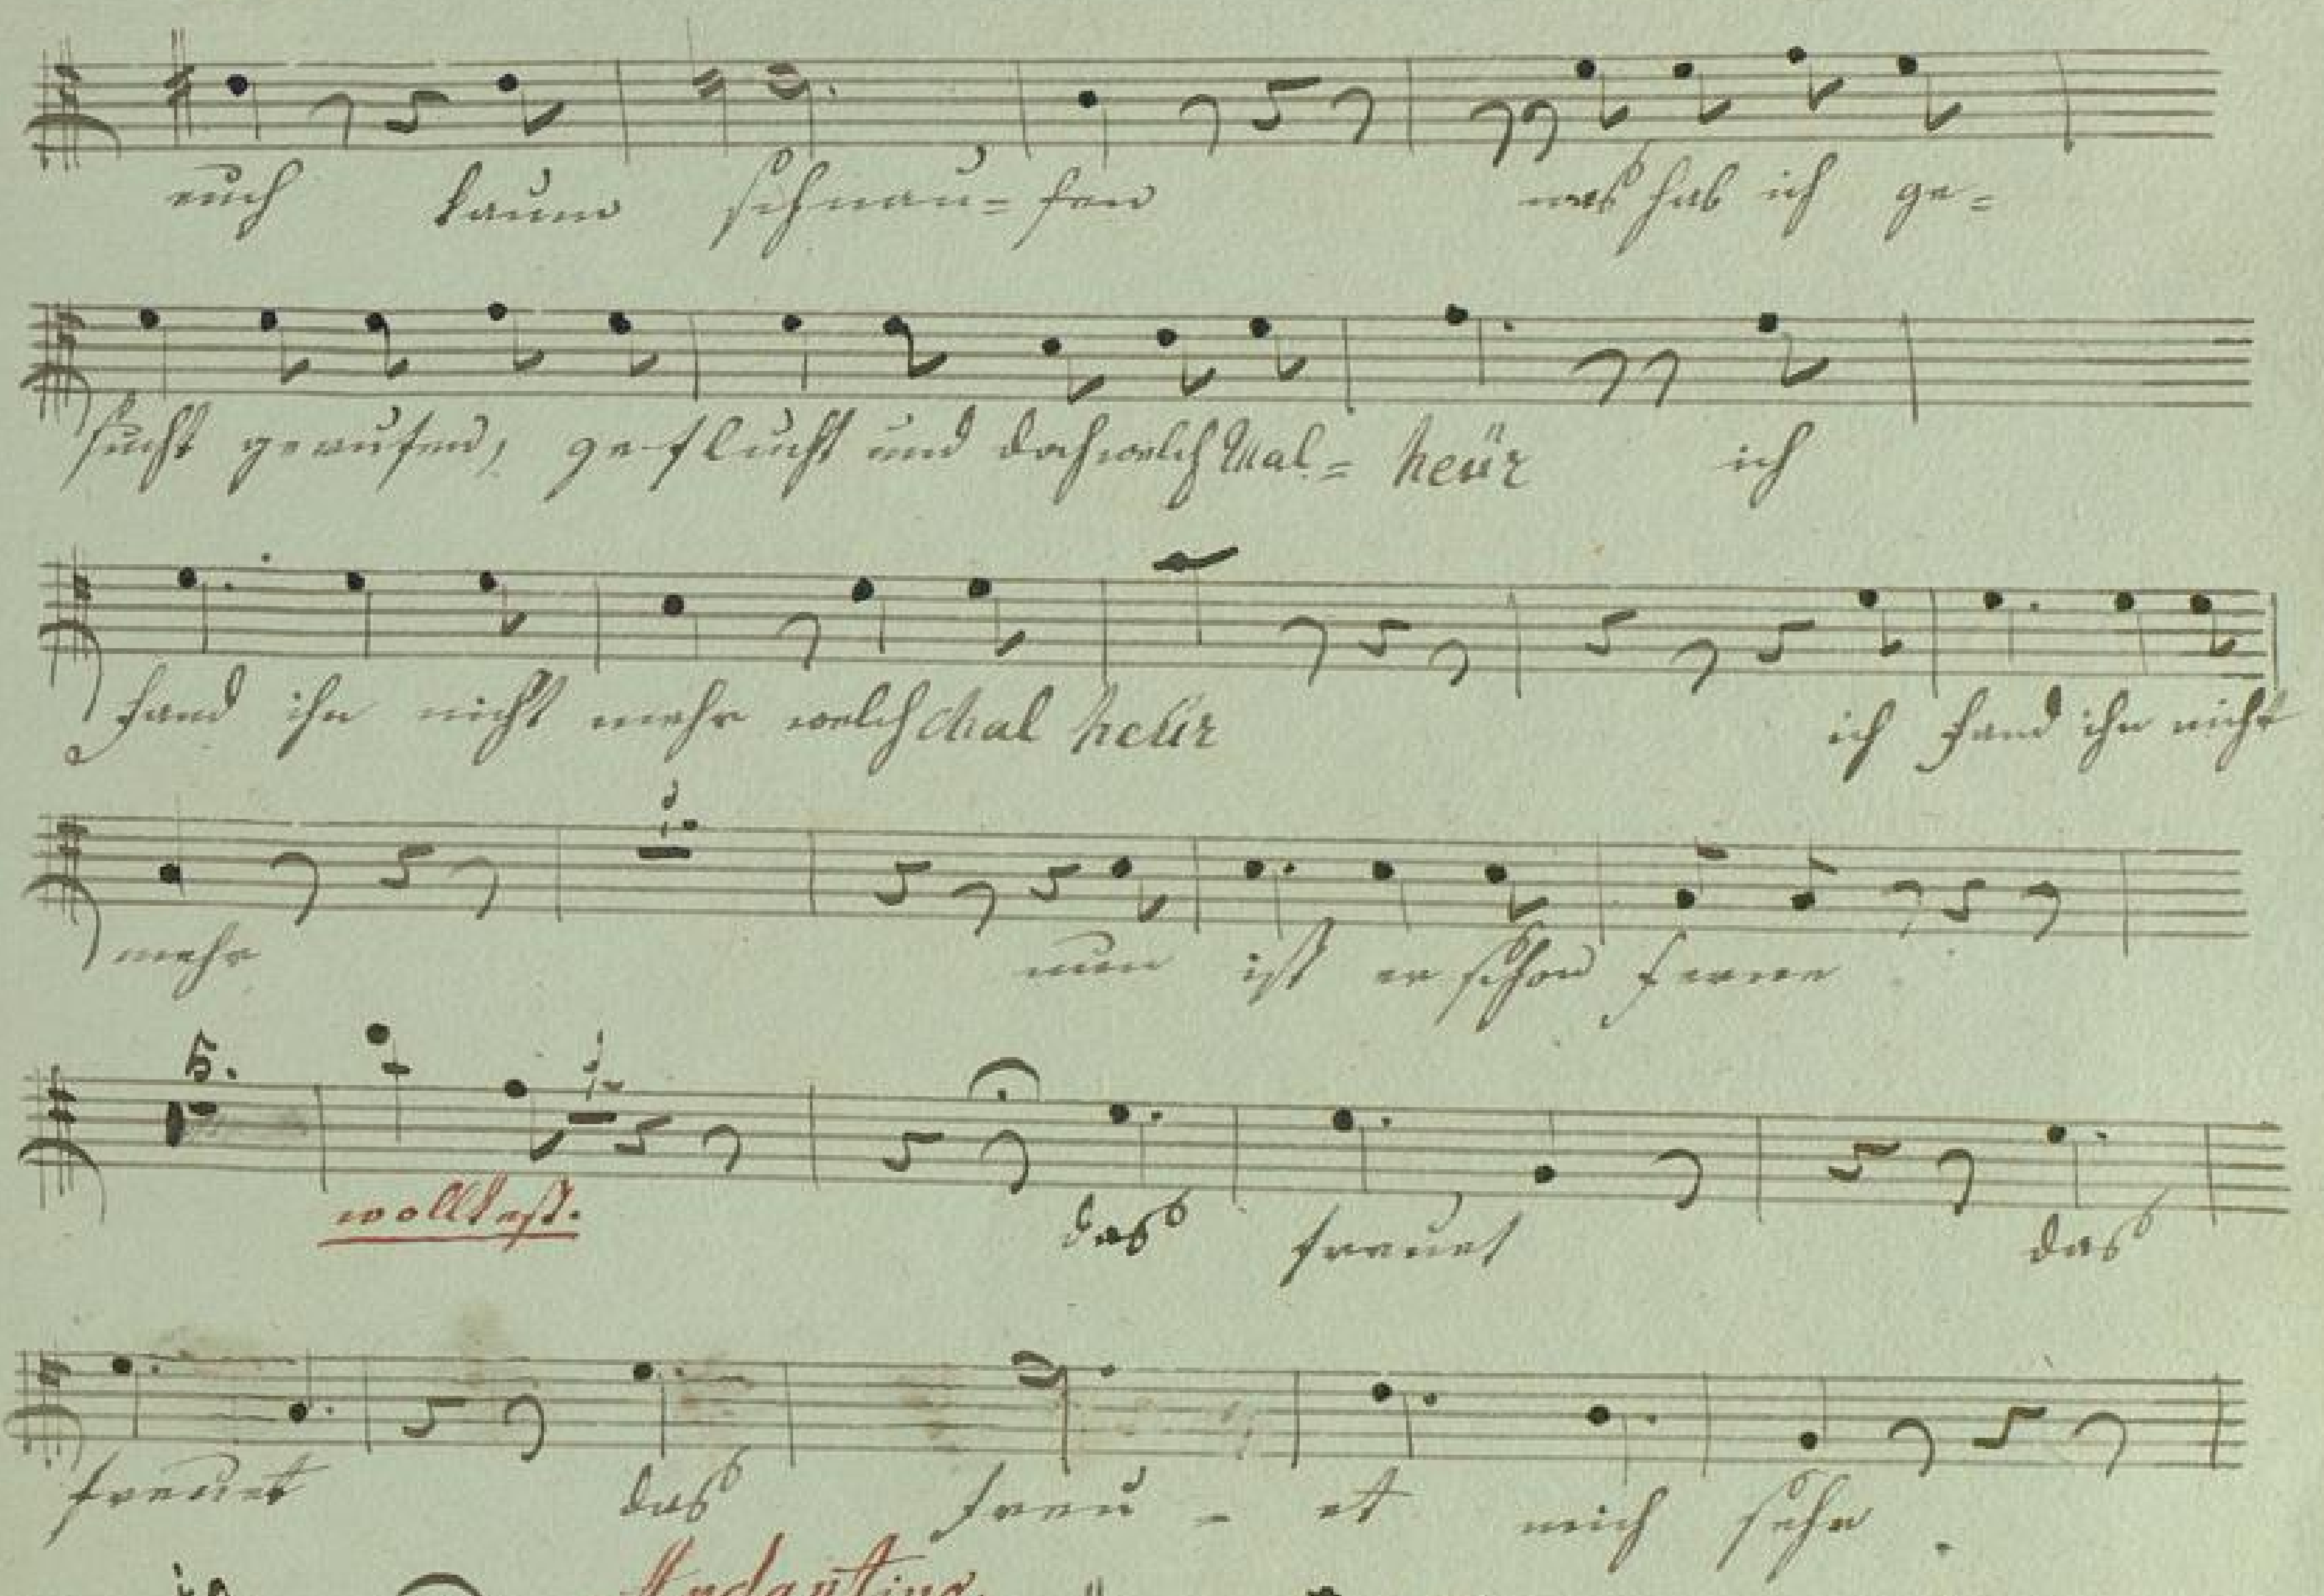 euch kaum schnau= fen was hab ich ge=
sucht gerufen, geflucht und doch welch Mal= heür ich
fand ihn nicht mehr welch Mal heür ich fand ihn nicht
mehr nun ist er schon ferne
5.
wolltest. das freuet das
freuet das freu - et mich sehr
Andantino